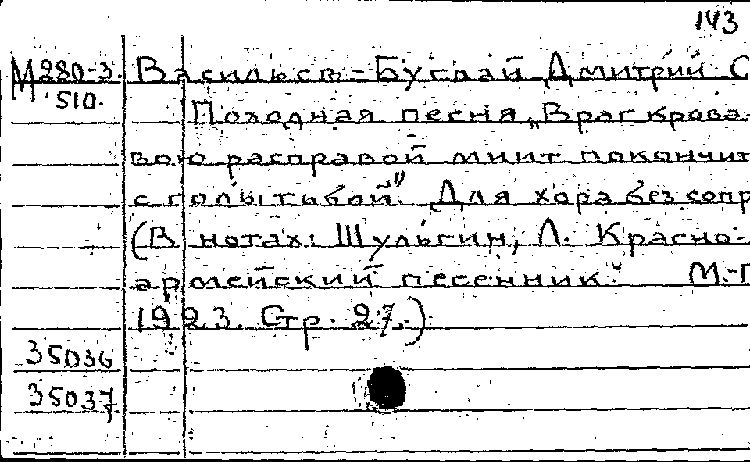 143
М 280-3. Васильев-Буглай Дмитрий С
510.
Походная песня „Враг крова-
вою расправой мнит покончит
с голытьбой" Для хора без сопр
(В нотах: Шульгин, Л. Красно-
армейский песенник. М.-П
1923. Стр. 27.)
35036
35037